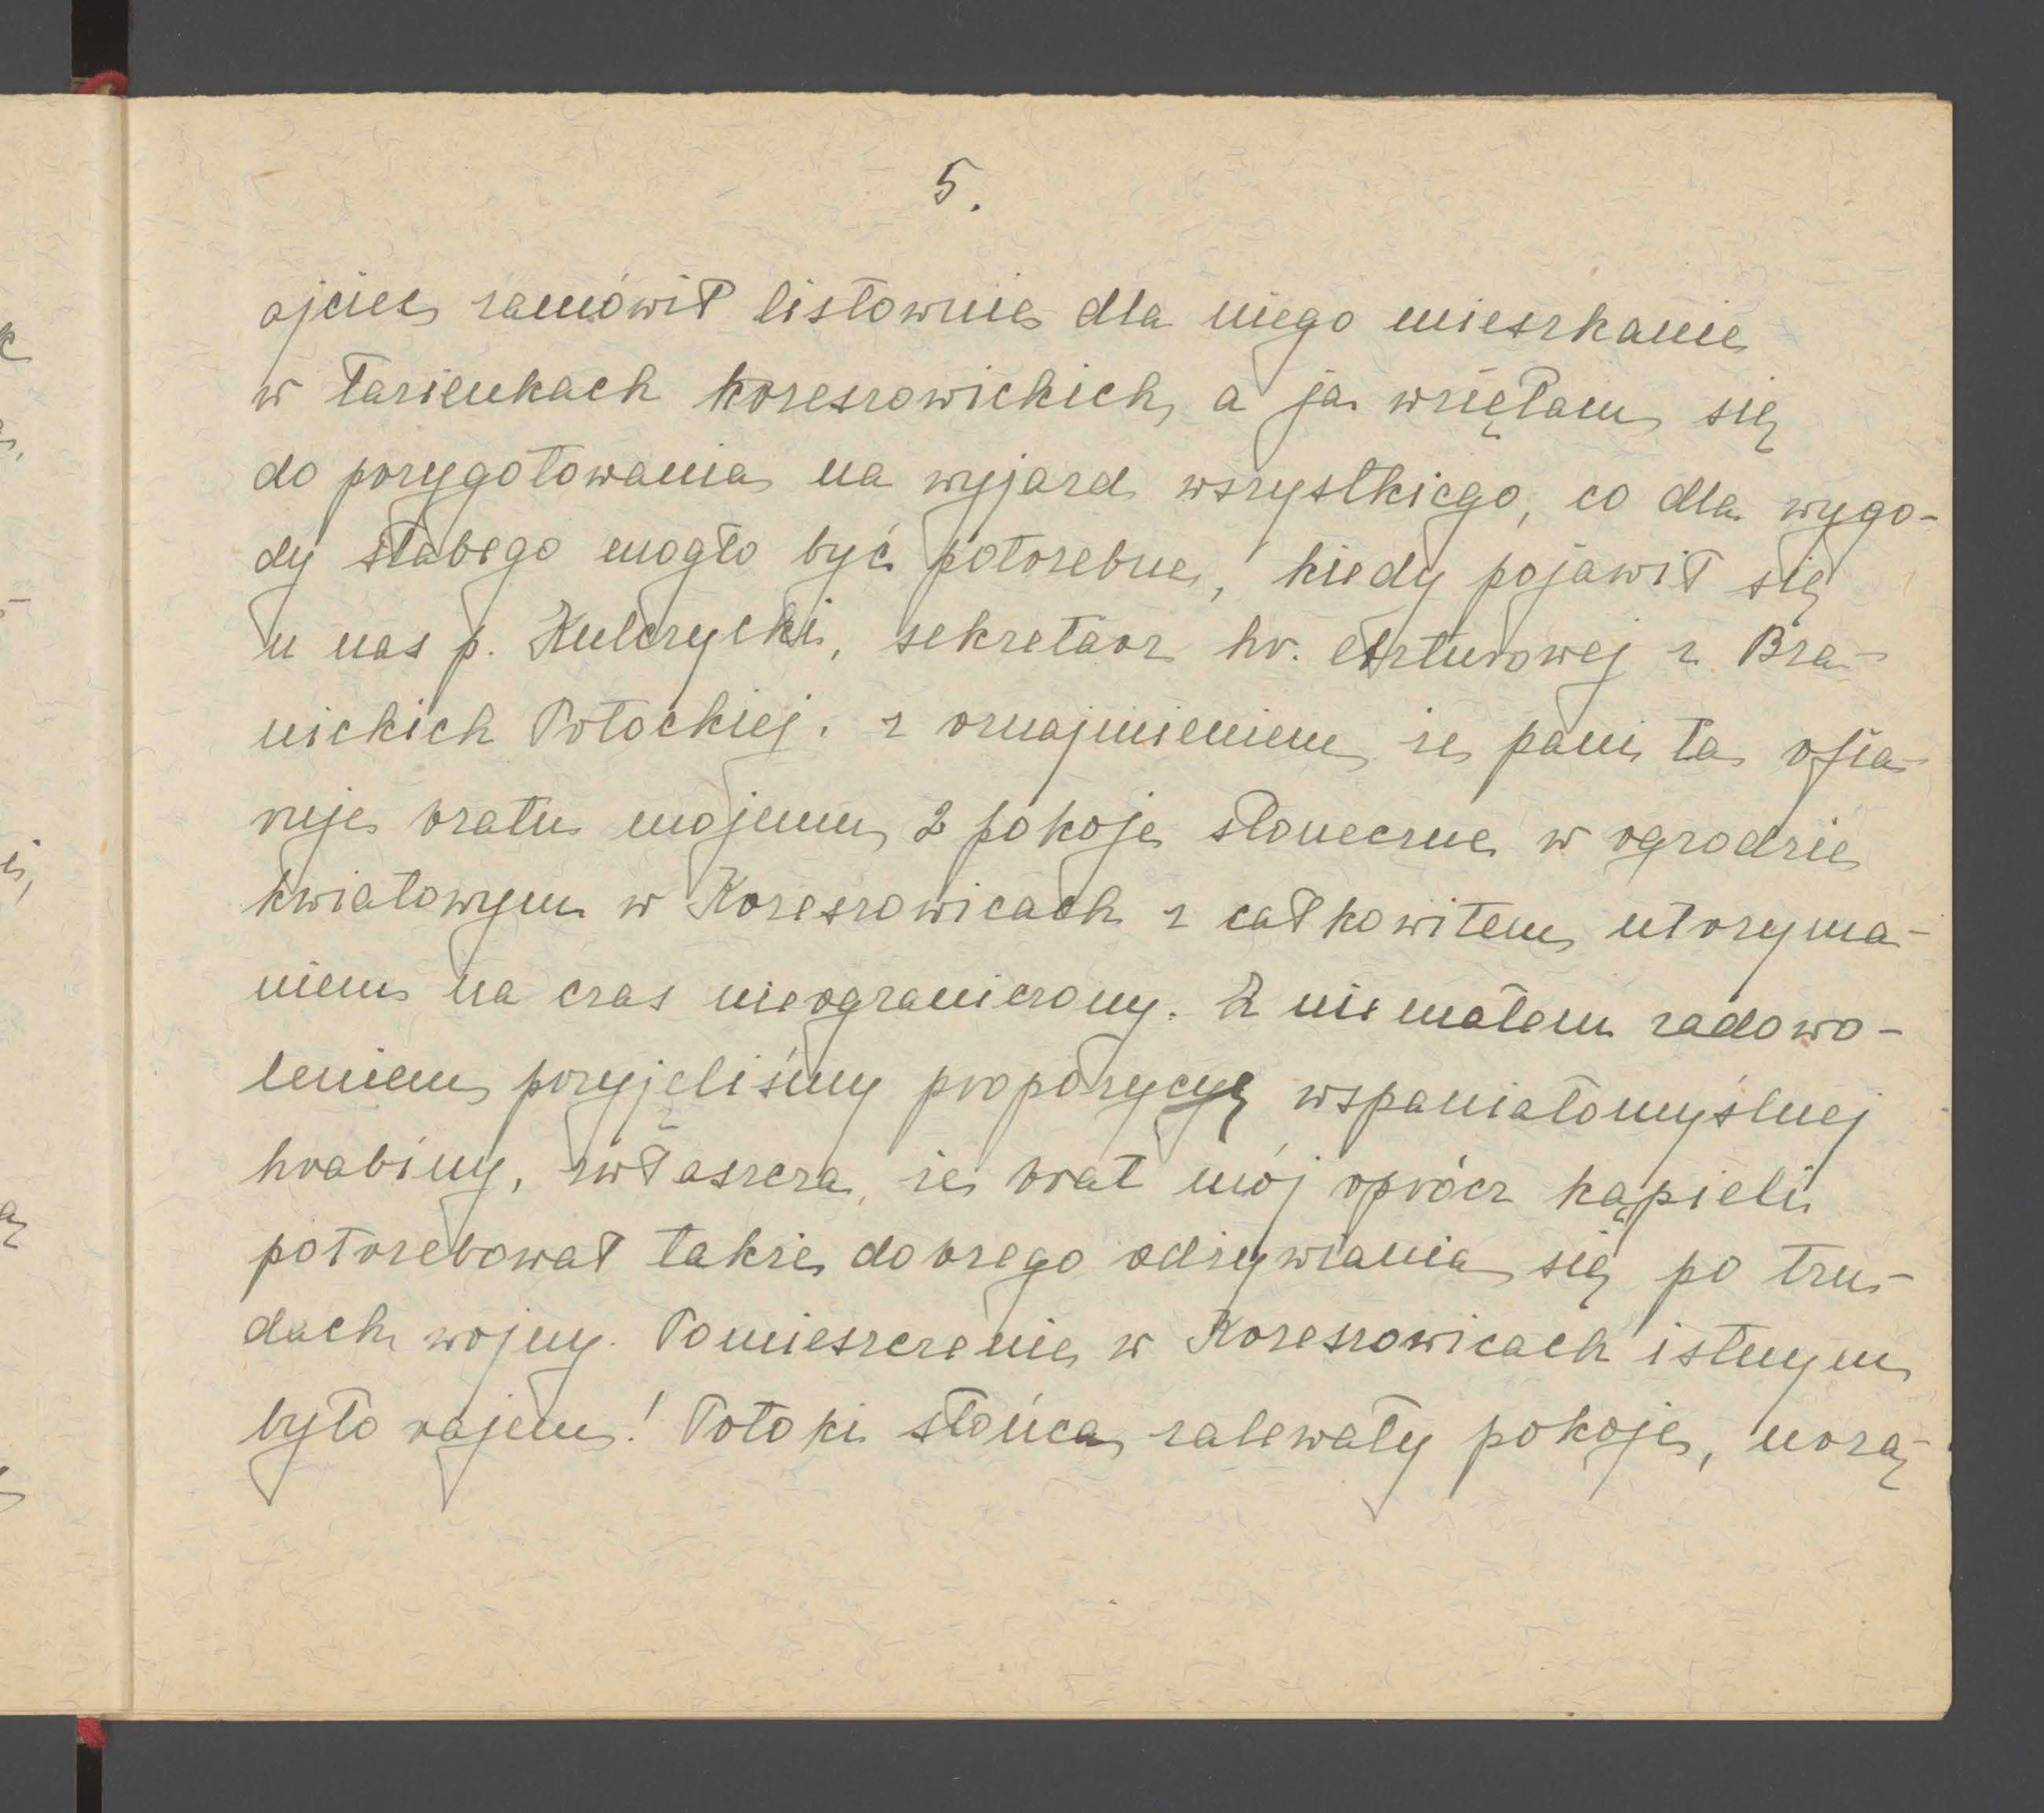 5.
ojciec zamówił listownie dla niego mieszkanie
w łazienkach krzeszowickich, a ja wzięłam się
do przygotowania na wyjazd wszystkiego, co dla wygo-
dy słabego mogło być potrzebne, kiedy pojawił się
u nas p. Kulczycki, sekretarz hr. Arturowej z Bra-
nickich Potockiej. z oznajmieniem że pani ta ofia-
ruje bratu mojemu 2 pokoje słoneczne w ogrodzie
kwiatowym w Krzeszowicach z całkowitem utrzyma-
niem na czas nieograniczony. Z niemałem zadowo-
leniem przyjęliśmy propozycyę wspaniałomyślnej
hrabiny, zwłaszcza, że brat mój oprócz kąpieli
potrzebował także dobrego odżywiania się po tru-
dach wojny. Pomieszczenie w Krzeszowicach istnym
było rajem! Potoki słońca zalewały pokoje, urzą-